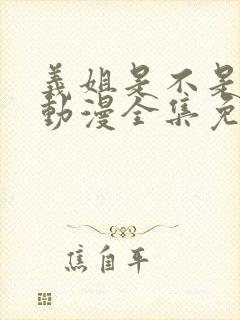 義姐是不是
動漫全集免
焦自平